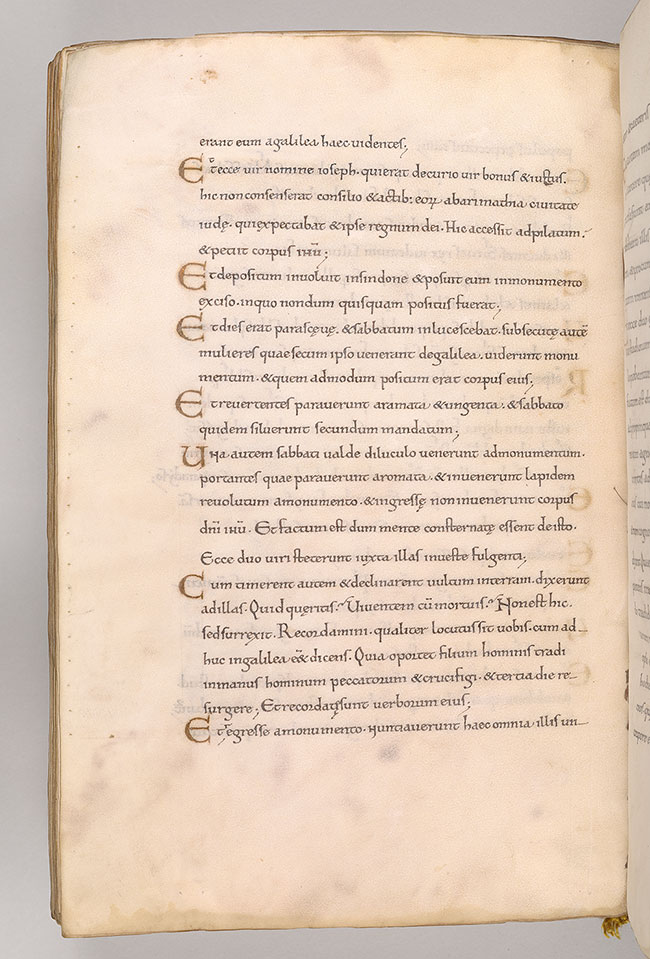 erant eum agalilea haec videntes;
Et ecce vir nomine ioseph· qui erat decurio vir bonus & iustus·
hic non consenserat consilio & actib: eoꝝ abarimathia civitate
iudę· qui expectabat & ipse regnum dei· Hic accessit ad pilatum·
& petiit corpus ihū;
Et depositum involuit insindone & posuit eum inmonumento
exciso· inquo nondum quisquam positus fuerat;
Et dies erat parascęvę· & sabbatum inlucescebat· subsecutę autē
mulieres quae secum ipso venerant degalilea· viderunt monu
mentum· & quem admodum positum erat corpus eius;
Et revertentes paraverunt aramata & ungenta· & sabbato
quidem siluerunt secundum mandatum;
Una autem sabbati valde diluculo venerunt admonumentum·
portantes quae paraverunt aromata· & invenerunt lapidem
revolutum amonumento· & ingressę non invenerunt corpus
dn̄i ihū· Et factum est dum mente consternatę essent deisto·
Ecce duo viri steterunt iuxta illas investe fulgenti;
Cum timerent autem & declinarent vultum interram· dixerunt
adillas· Quid quęritis Viventem cū mortuis· Non est hic·
sed surrexit· Recordamini· qualiter locutus sit vobis· cum ad
huc ingalilea ēēt dicens· Quia oportet filium hominis tradi
inmanus hominum peccatorum & crucifigi· & tertia die re
surgere; Et recordatę sunt verborum eius;
Et egresse amonumento· nuntiaverunt haec omnia illis un